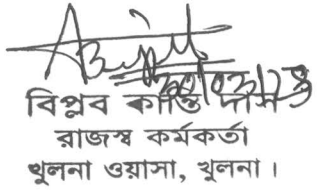 বিপ্লব কান্তি দাস
রাজস্ব কর্মকর্তা
খুলনা ওয়াসা, খুলনা ।